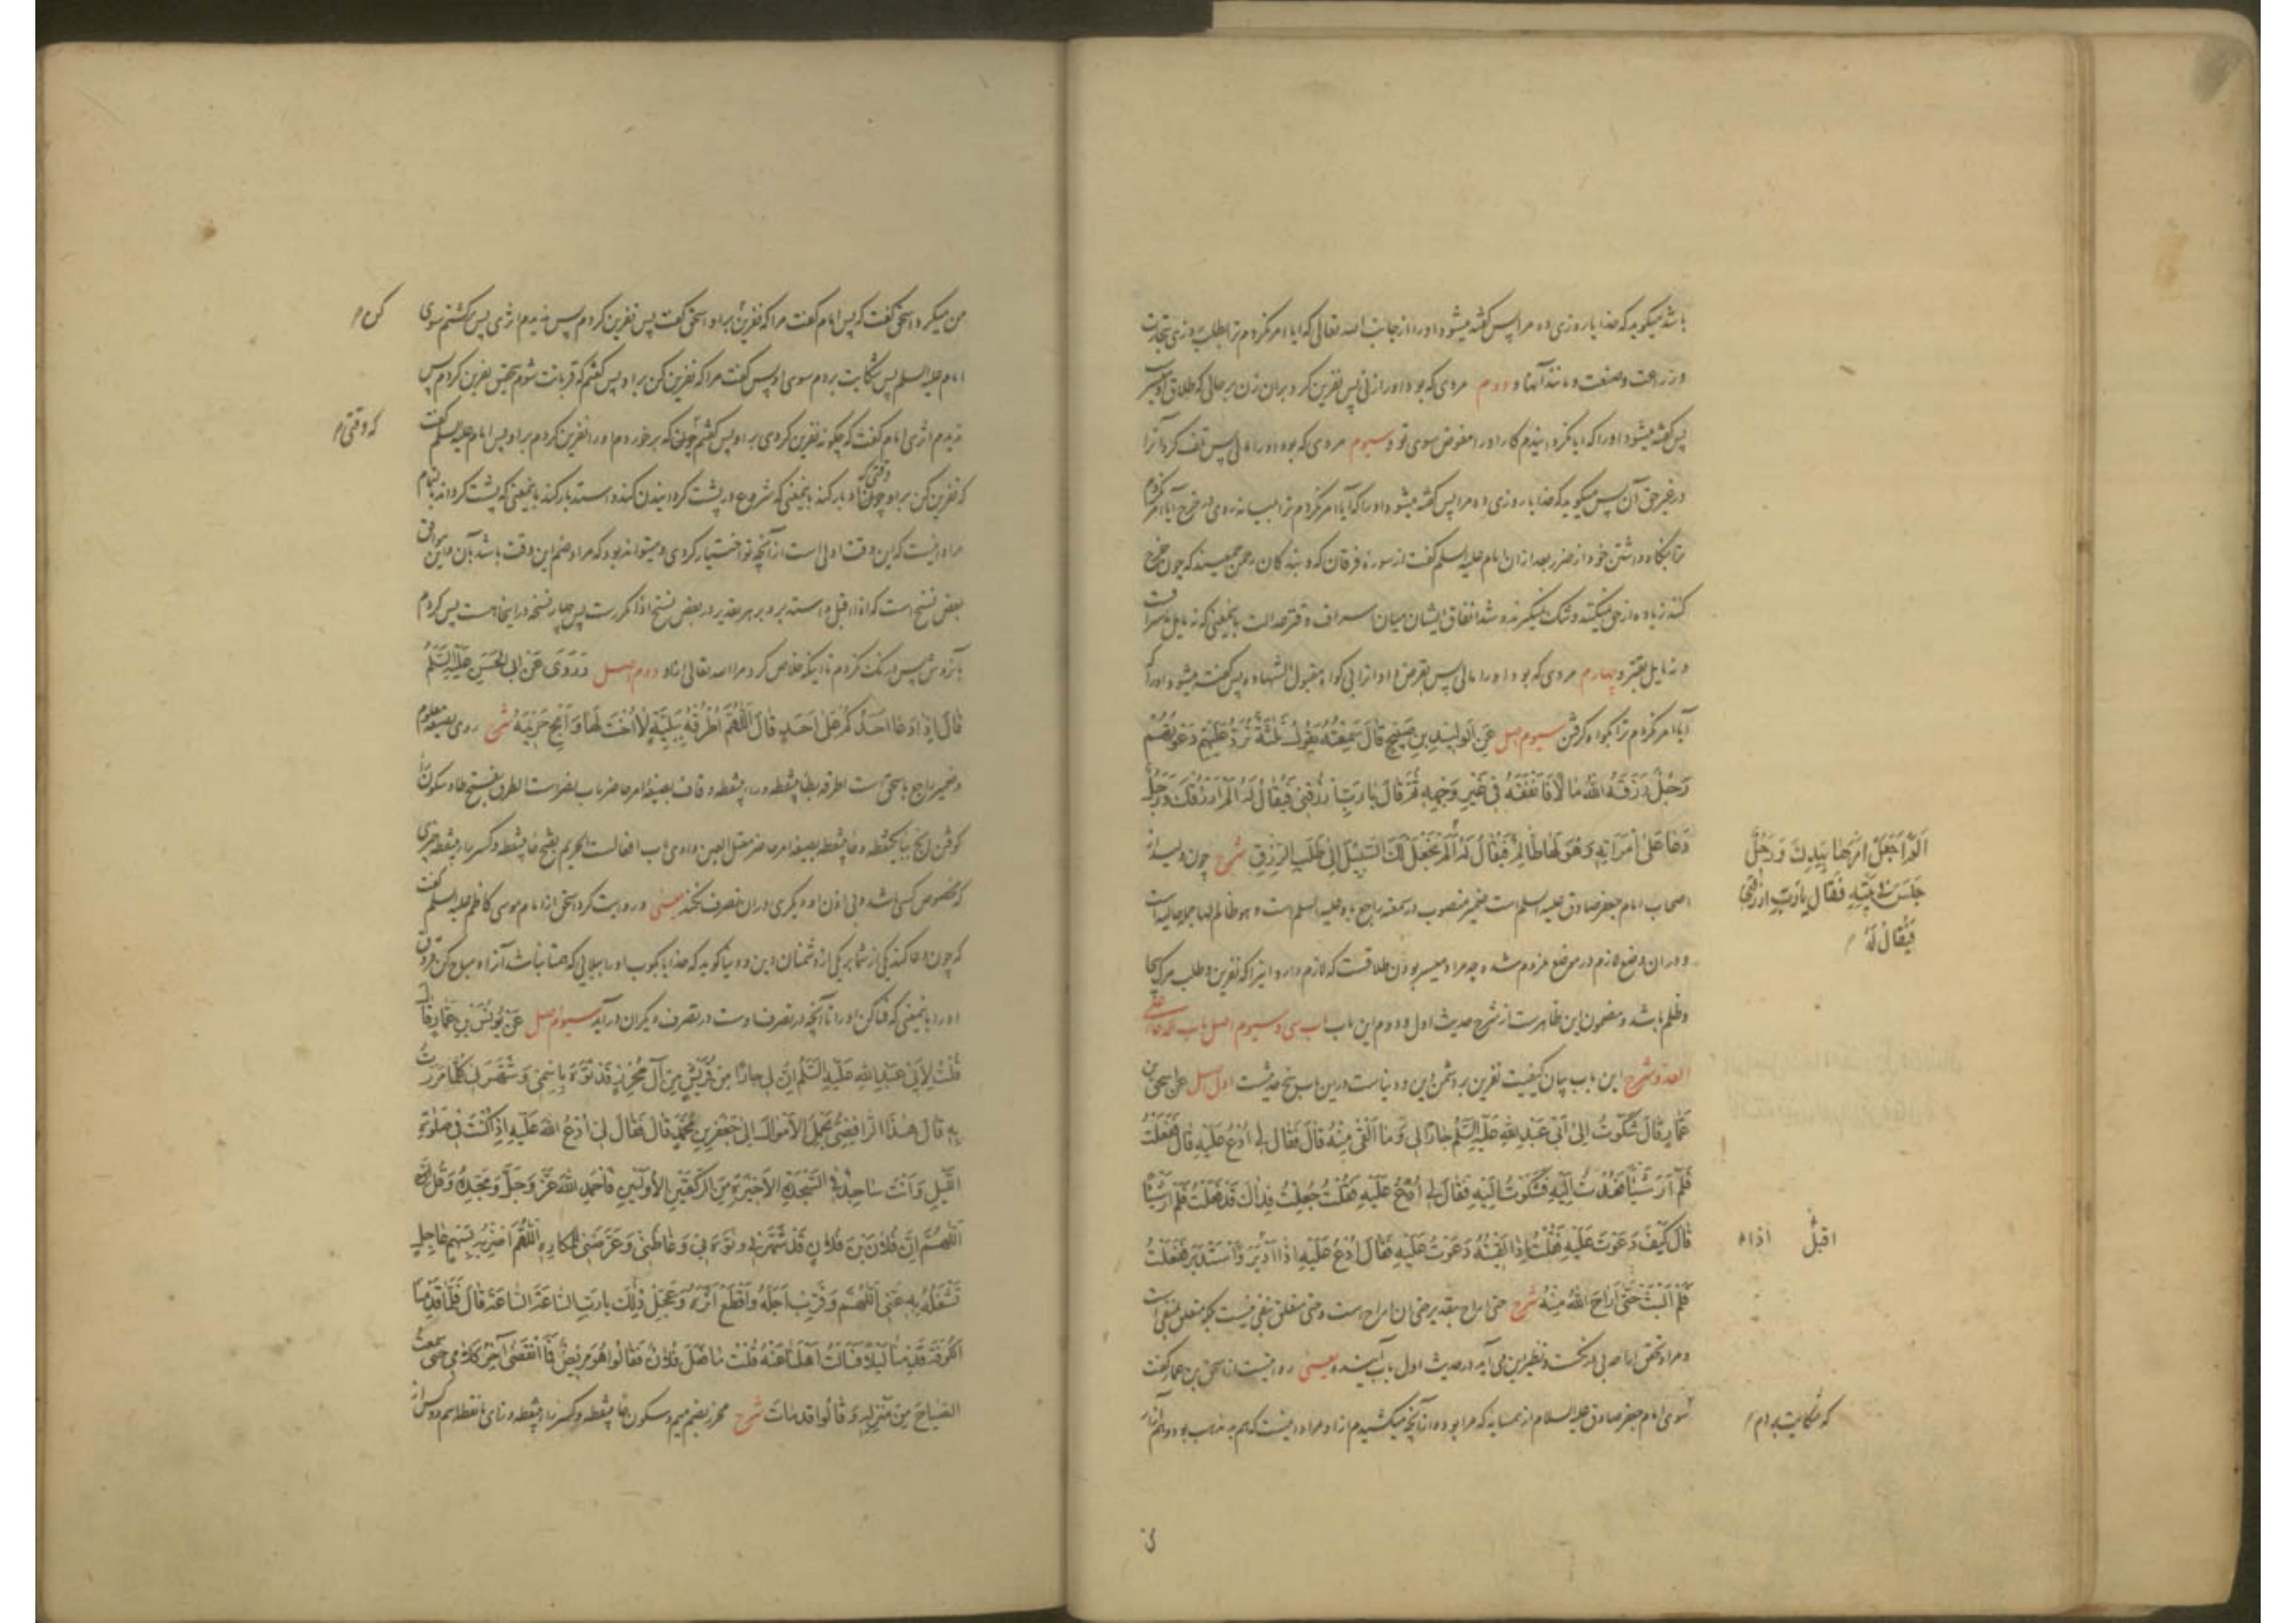 باشد میگوید که خدایا روزی ده مرا پس گفته میشود او را از جانب الله تعالی که ایا امر نکردم ترا بطلب روزی بتجارت
و زراعت و صنعت و مانند آنها و دوم مردی که بود او را زنی پس نفرین کرد بر آن زن بر حالی که طلاق او میسر
پس گفته میشود او را که ایا نگردانیدم کار او را مفوض سوی تو و سیوم مردی که بود او را مالی پس تلف کرد آنرا
در غیر حق آن پس میگوید که خدایا روزی ده مرا پس گفته میشود او را که آیا امر نکردم ترا بمیانه روی در خرج آیا امر نکردم
ترا بنگاه داشتن خود از ضرر بعد از ان امام علیه السلم گفت از سوره فرقان که و بندگان رحمن جمعیند که چون خرج
کنند زیاده از حق نمیکنند و تنگ نمیگیرند و شد انفاق ایشان میان اسراف و قتر عدالت باینمعنی که نه مایل باسراف است
و نه مایل بقتر و چهارم مردی که بود او را مالی پس بقرض داد آنرا بی گواه مقبول الشهاده پس گفته میشود او را که
آیا امر نکردم ترا بگواه گرفتن سیوم اصل عَنِ الْوَلِيدِ بْنِ صَبِيحٍ قَالَ سَمِعْتُهُ يَقُولُ ثَلٰثَةٌ تُرَدُّ عَلَيْهِمْ دَعْوَتُهُمْ
رَجُلٌ رَزَقَهُ اللهُ مَالًا فَأَنْفَقَهُ فِي غَيْرِ وَجْهِهِ ثُمَّ قَالَ يَا رَبِّ ارْزُقْنِي فَيُقَالُ لَهُ أَلَمْ أَرْزُقْكَ وَرَجُلٌ
دَعَا عَلَى امْرَأَتِهِ وَهُوَ لَهَا ظَالِمٌ فَيُقَالُ لَهُ أَلَمْ أَجْعَلْ لَكَ السَّبِيلَ إِلَى طَلَبِ الرِّزْقِ شرح چون ولید از
اَلَمْ اَجْعَلْ اَمْرَهَا بِيَدِكَ وَرَجُلٌ
جَلَسَ فِي بَيْتِهِ فَقَالَ يَا رَبِّ ارْزُقْنِي
فَيُقَالُ لَهُ
اصحاب امام جعفر صادق علیه السلم است ضمیر منصوب در سمعته راجع باو علیه السلم است و هو ظالم لها جمله حالیه است
و در ان وضع لازم در موضع ملزوم شده چه مراد میسر بودن طلاقست که لازم دارد اینرا که نفرین و طلب مرگ بیجا
و ظلم باشد و مضمون این ظاهرست از شرح حدیث اول و دوم این باب باب سی و سیوم اصل باب الدعاء علی
العدو شرح این باب بیان کیفیت نفرین بر دشمن این و دنیاست درین باب پنج حدیث اول اصل عن اسحق بن
عَمَّارٍ قَالَ شَكَوْتُ إِلَى أَبِي عَبْدِ اللهِ عَلَيْهِ السَّلَمُ جَارًا لِي وَمَا أَلْقَى مِنْهُ قَالَ فَقَالَ لِي ادْعُ عَلَيْهِ قَالَ فَفَعَلْتُ
فَلَمْ أَرَ شَيْئًا فَعُدْتُ إِلَيْهِ فَشَكَوْتُ إِلَيْهِ فَقَالَ لِي ادْعُ عَلَيْهِ فَقُلْتُ جُعِلْتُ فِدَاكَ قَدْ فَعَلْتُ فَلَمْ أَرَ شَيْئًا
قَالَ كَيْفَ دَعَوْتَ عَلَيْهِ فَقُلْتُ إِذَا لَقِيتُهُ دَعَوْتُ عَلَيْهِ فَقَالَ ادْعُ عَلَيْهِ إِذَا أَدْبَرَ وَاسْتَدْبَرَ فَفَعَلْتُ
اقبل اذا
فَلَمْ أَلْبَثْ حَتَّى أَرَاحَ اللهُ مِنْهُ شرح حتی اراح بتقدیر حتی ان اراح است و حتی متعلق بنفی نیست بلکه متعلق بمنفی است
و مراد تحقق اراحه بی درنگست و نظیر این می آید در حدیث اول باب آینده یعنی روایتست از اسحق بن عمار گفت
سوی امام جعفر صادق علیه السلام از همسایه که مرا بود و از آنچه میکشیدم از او مراد اینست که هم مذهب بود و آنهم
که شکایت بردم
من میکرد اسحق گفت که پس امام گفت مرا که نفرین بر او اسحق گفت پس نفرین کردم پس ندیدم اثری پس برگشتم سوی
کن
امام علیه السلم پس شکایت بردم سوی او پس گفت مرا که نفرین کن بر او پس گفتم که قربانت شوم بتحقیق نفرین کردم پس
ندیدم اثری امام گفت که چگونه نفرین کردی بر او پس گفتم چون که برخوردم او را نفرین کردم بر او پس امام علیه السلم گفت
که وقتی
که نفرین کن بر او چون وقتی که ادبار کند باینمعنی که شروع در پشت گردانیدن کند و استدبار کند باینمعنی که پشت گرداند بالتمام
مراد اینست که این وقت اولی است از آنچه تو اختیار کردی و میتواند بود که مراد ضم این وقت باشد بآن و این موافق
بعض نسخ است که اذا اقبل و استدبر و بر هر تقدیر در بعض نسخ اذا مکررست پس چهار نسخه در اینجاست پس کردم
بازودش پس درنگ نکردم تا اینکه خلاص کرد مرا الله تعالی از او دوم اصل وَرَوَى عَنْ أَبِي الْحَسَنِ عَلَيْهِ السَّلَمُ
قَالَ إِذَا دَعَا أَحَدُكُمْ عَلَى أَحَدٍ قَالَ اللّٰهُمَّ اطْرُقْهُ بِبَلِيَّةٍ لَا أُخْتَ لَهَا وَأَبِحْ حَرِيمَهُ شرح روی بصیغه معلوم
و ضمیر راجع باسحق است اطرقه بطا بینقطه و راء بینقطه و قاف بصیغه امر حاضر باب نصرست الطرق بفتح طا و سکون را
کوفتن ابح بیایکنقطه و حا بینقطه بصیغه امر حاضر معتل العین واوی باب افعالست الحریم بفتح حا بینقطه و کسر راء بینقطه چیزی
که مخصوص کسی باشد و بی اذن او دیگری در ان تصرف نکند یعنی و روایت کرد اسحق از امام موسی کاظم علیه السلم گفت
که چون دعا کند یکی از شما بر یکی از دشمنان دین و دنیا گوید که خدایا بکوب او را ببلایی که همتا نباشد آنرا و مباح کن قروق
او را باینمعنی که فنا کن او را تا آنچه در تصرف اوست در تصرف دیگران در آید سیوم اصل عَنْ يُونُسَ بْنِ عَمَّارٍ قَالَ
قُلْتُ لِأَبِي عَبْدِ اللهِ عَلَيْهِ السَّلَمُ إِنَّ لِي جَارًا مِنْ قُرَيْشٍ مِنْ آلِ مُحْرِزٍ قَدْ نَوَّهَ بِاسْمِي وَشَهَرَنِي كُلَّمَا مَرَرْتُ
بِهِ قَالَ هٰذَا الرَّافِضِيُّ يَحْمِلُ الْأَمْوَالَ إِلَى جَعْفَرِ بْنِ مُحَمَّدٍ قَالَ فَقَالَ لِي ادْعُ اللهَ عَلَيْهِ إِذَا كُنْتَ فِي صَلٰوةِ
اللَّيْلِ وَأَنْتَ سَاجِدٌ فِي السَّجْدَةِ الْأَخِيرَةِ مِنَ الرَّكْعَتَيْنِ الْأُولَيَيْنِ فَاحْمَدِ اللهَ عَزَّ وَجَلَّ وَمَجِّدْهُ وَقُلِ
اَللّٰهُمَّ إِنَّ فُلَانَ بْنَ فُلَانٍ قَدْ شَهَرَنِي وَنَوَّهَ بِي وَغَاظَنِي وَعَرَّضَنِي لِلْمَكَارِهِ اللّٰهُمَّ اضْرِبْهُ بِسَهْمٍ عَاجِلٍ
تَشْغَلُهُ بِهِ عَنِّي اللّٰهُمَّ وَقَرِّبْ أَجَلَهُ وَاقْطَعْ أَثَرَهُ وَعَجِّلْ ذٰلِكَ يَا رَبِّ السَّاعَةَ السَّاعَةَ قَالَ فَلَمَّا قَدِمْنَا
الْكُوفَةَ قَدِمْنَا لَيْلًا فَسَأَلْتُ أَهْلَنَا عَنْهُ قُلْتُ مَا فَعَلَ فُلَانٌ فَقَالُوا هُوَ مَرِيضٌ فَمَا انْقَضَى آخِرُ كَلَامِي حَتَّى سَمِعْتُ
الصِّيَاحَ مِنْ مَنْزِلِهِ وَقَالُوا قَدْ مَاتَ شرح محرز بضم میم و سکون حا بینقطه و کسر راء بینقطه و زای با نقطه اسم دو کس از